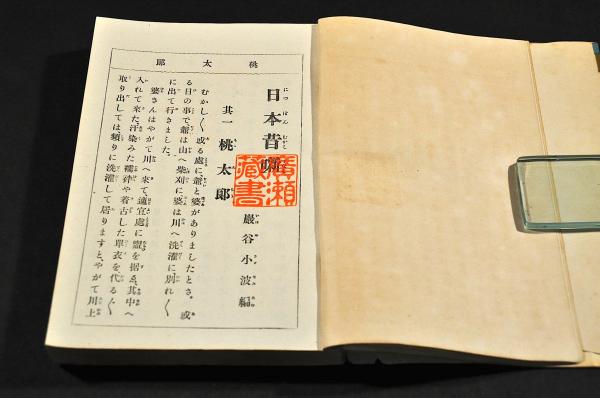 桃太郎
日本昔噺
其一 桃太郎
巖谷小波編
廣瀬藏書
むかし〱或る處に爺と婆がありましたとさ。或
る日の事で爺は山へ柴刈に婆は川へ洗濯に別れ〱
に出て行きました。
婆さんはやがて川へ來て、適宜處に盥を据ゑ、其中へ
入れて來た、汗染みた襦袢や着古した單衣を、代る〲
取り出しては頻りに洗濯して居りますと、やがて川上